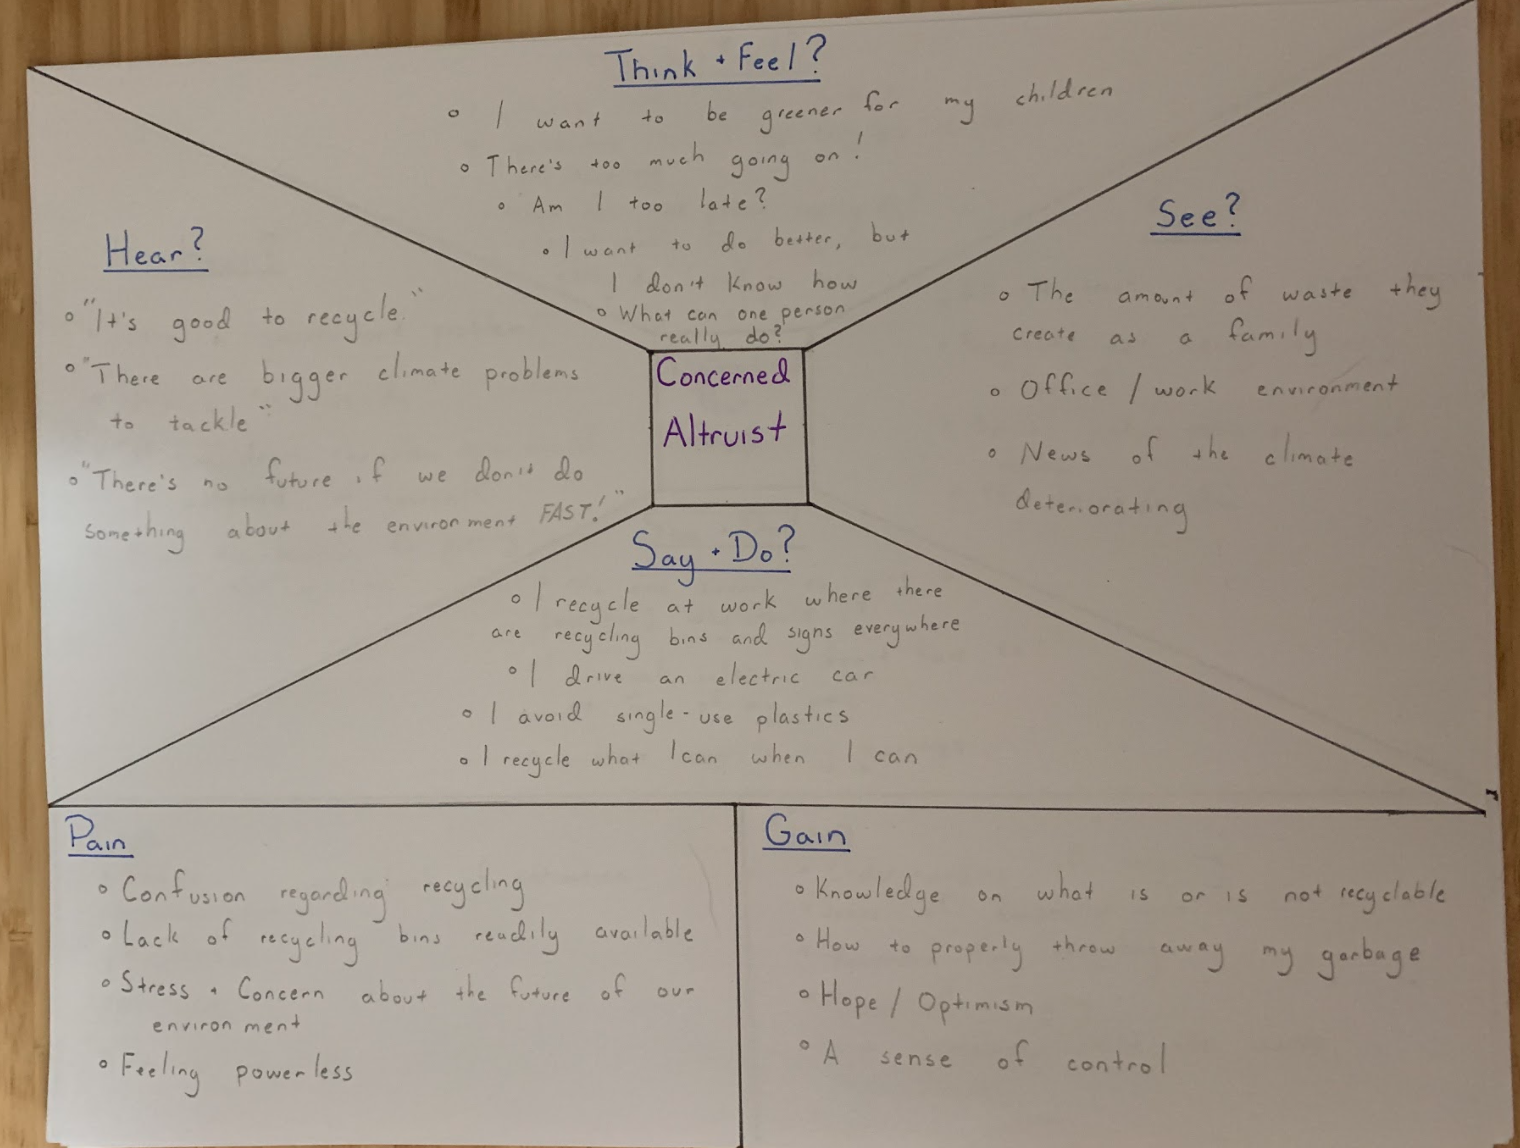 Think + Feel?
o I want to be greener for my children
o There's too much going on!
o Am I too late?
o I want to do better, but
I don't know how
o What can one person
really do?
Hear?
o "It's good to recycle."
o "There are bigger climate problems
to tackle"
o "There's no future if we don't do
something about the environment FAST!"
Concerned
Altruist
See?
o The amount of waste they
create as a family
o Office / work environment
o News of the climate
deteriorating
Say + Do?
o I recycle at work where there
are recycling bins and signs everywhere
o I drive an electric car
o I avoid single-use plastics
o I recycle what I can when I can
Pain
o Confusion regarding recycling
o Lack of recycling bins readily available
o Stress + Concern about the future of our
environment
o Feeling powerless
Gain
o Knowledge on what is or is not recyclable
o How to properly throw away my garbage
o Hope / Optimism
o A sense of control